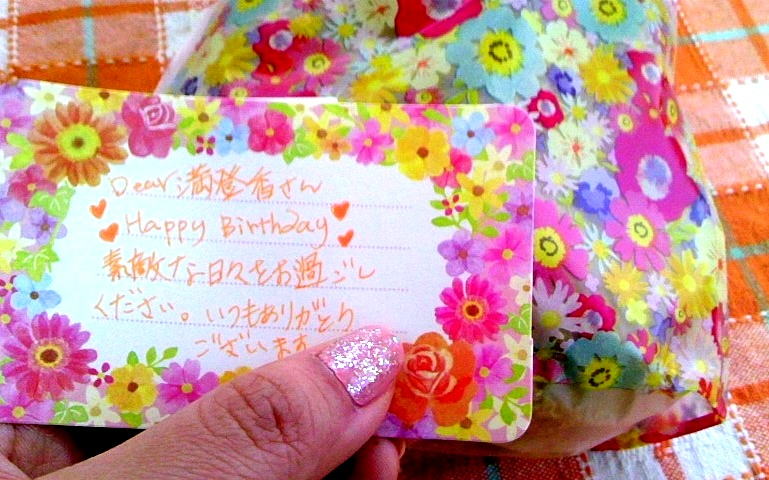 Dear 満登香さん
Happy Birthday
素敵な日々をお過ごし
ください。いつもありがとう
ございます